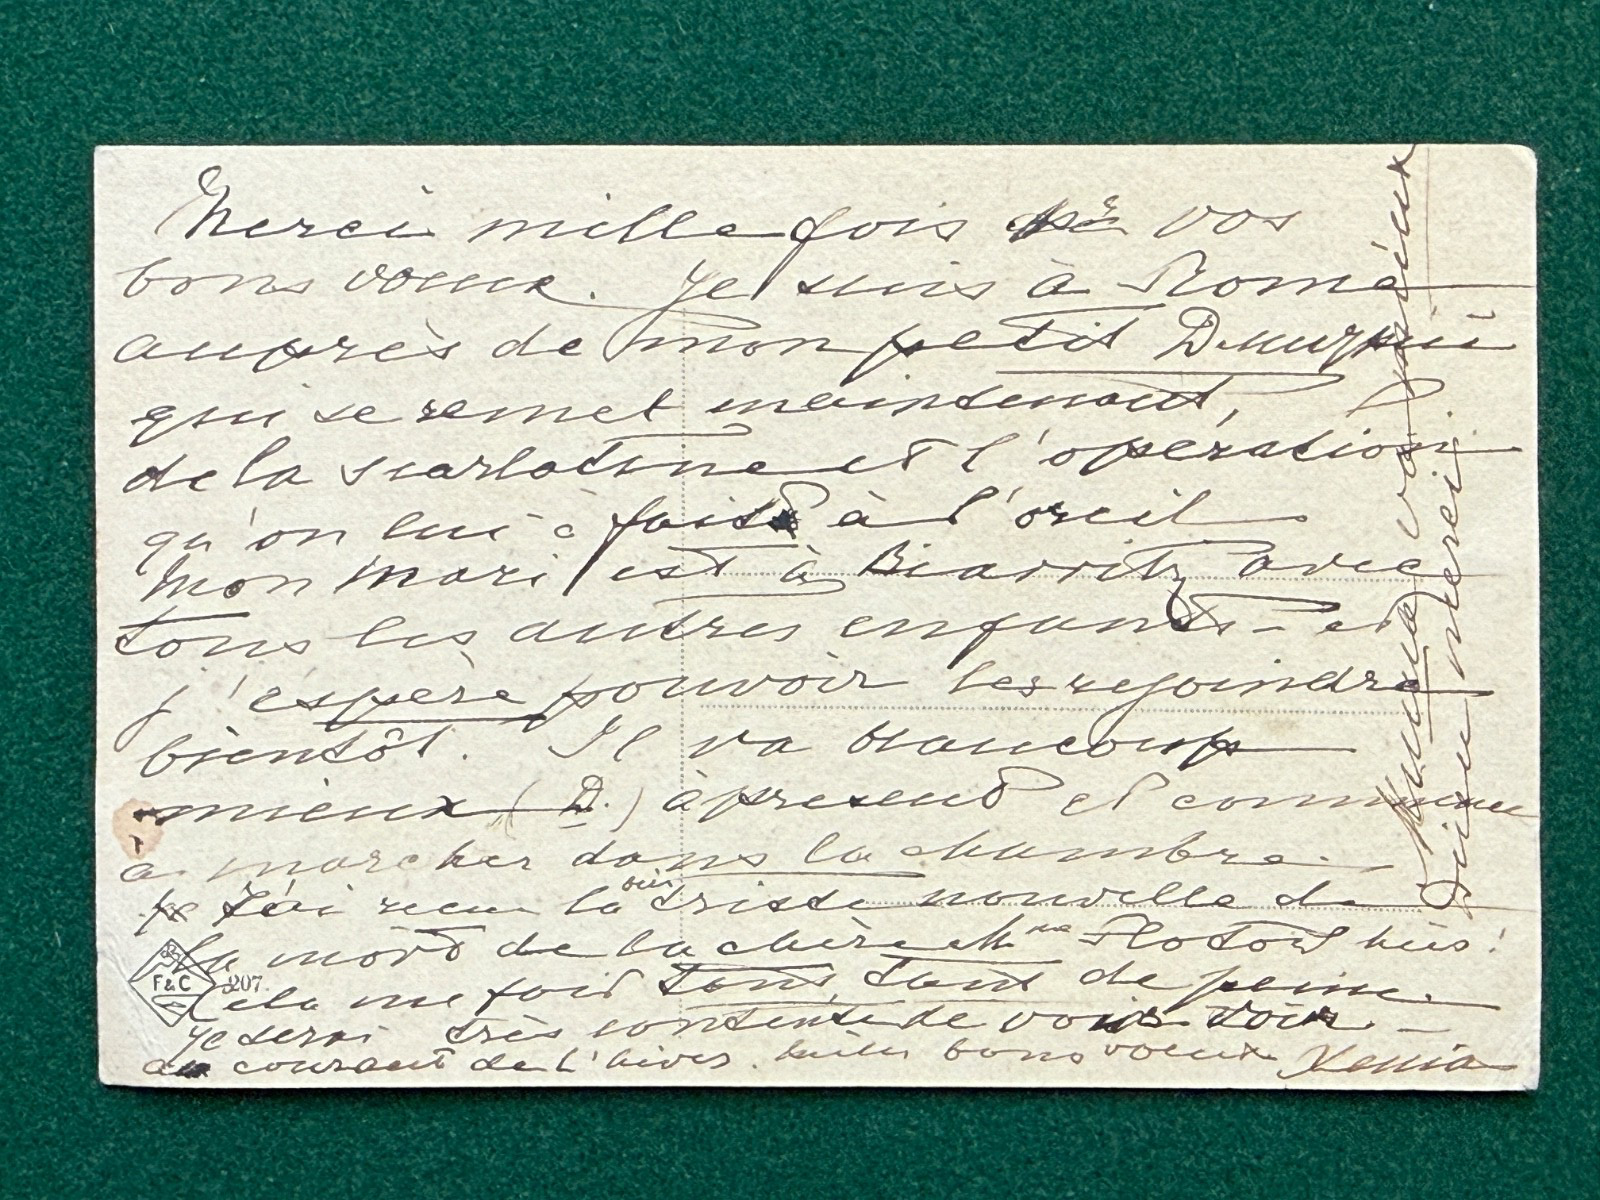 Merci mille fois pr vos
bons voeux. Je suis à Rome
auprès de mon petit Dmitri
qui se remet maintenant,
de la scarlatine et l'opération
qu'on lui a fait à l'oreil
Mon mari est à Biarritz avec
tous les autres enfants - et
j'espère pouvoir les rejoindre
bientôt. Il va beaucoup
mieux (D.) à present et commence
a marcher dans la chambre.
J'ai recu la triste nouvelle de
la mort de la chère Mme
Cela me fait tant, tant de peine.
Je serai très contente de vous voir -
au courant de l'hiver. bons voeux Xenia
vas mieux
Dieu merci.
F&C 207.